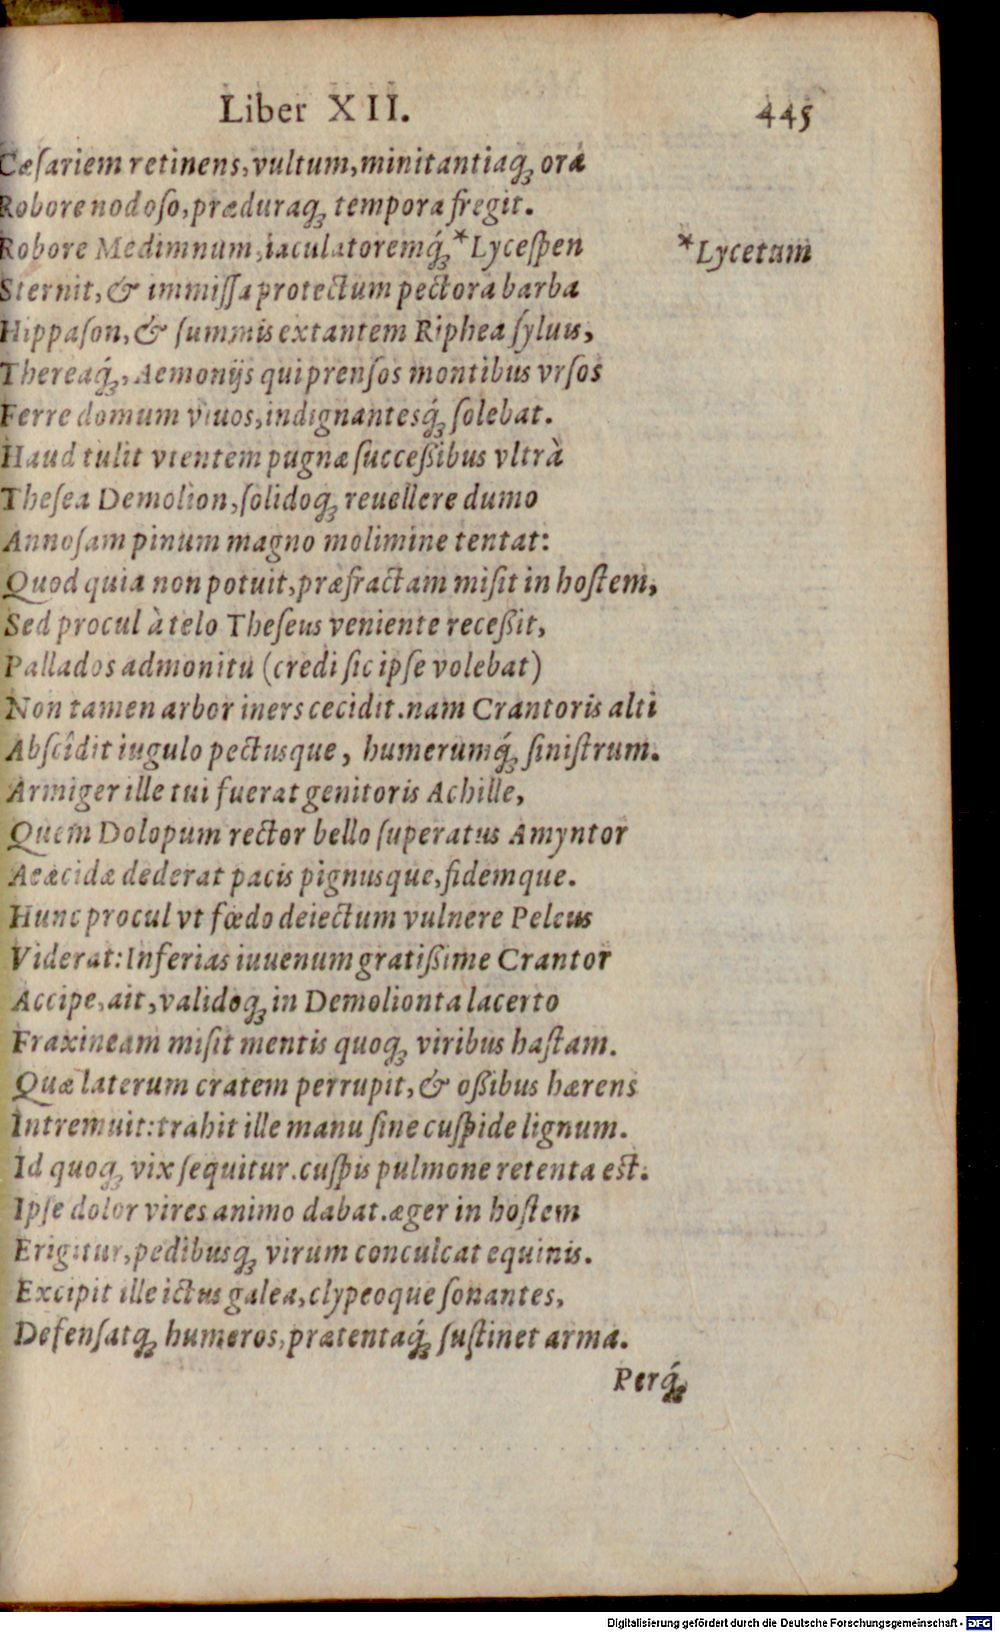 Liber XII. 445
Cæſariem retinens, vultum, minitantiaq́ꝫ ora
Robore nodoſo, præduraqꝫ tempora fregit.
Robore Medimnum, iaculatoremq́ꝫ *Lyceſpen
*Lycetum
Sternit, & immiſſa protectum pectora barba
Hippaſon, & ſummis extantem Riphea ſyluis,
Thereaq́ꝫ, Aemonijs qui prenſos montibus vrſos
Ferre domum viuos, indignantesq́ꝫ ſolebat.
Haud tulit vtentem pugnæ ſucceßibus vltrà
Theſea Demolion, ſolidoqꝫ reuellere dumo
Annoſam pinum magno molimine tentat:
Quod quia non potuit, præfractam miſit in hoſtem,
Sed procul à telo Theſeus veniente receßit,
Pallados admonitu (credi ſic ipſe volebat)
Non tamen arbor iners cecidit. nam Crantoris alti
Abſcîdit iugulo pectusque, humerumq́ꝫ ſiniſtrum.
Armiger ille tui fuerat genitoris Achille,
Quem Dolopum rector bello ſuperatus Amyntor
Aeacidæ dederat pacis pignusque, fidemque.
Hunc procul vt fœdo deiectum vulnere Peleus
Viderat: Inferias iuuenum gratißime Crantor
Accipe, ait, validoqꝫ in Demolionta lacerto
Fraxineam miſit mentis quoqꝫ viribus haſtam.
Quæ laterum cratem perrupit, & oßibus hærens
Intremuit: trahit ille manu ſine cuſpide lignum.
Id quoqꝫ vix ſequitur. cuſpis pulmone retenta eſt.
Ipſe dolor vires animo dabat. æger in hoſtem
Erigitur, pedibusqꝫ virum conculcat equinis.
Excipit ille ictus galea, clypeoque ſonantes,
Defenſatqꝫ humeros, prætentaq́ꝫ ſuſtinet arma.
Perq́ꝫ
Digitalisierung gefördert durch die Deutsche Forschungsgemeinschaft - DFG